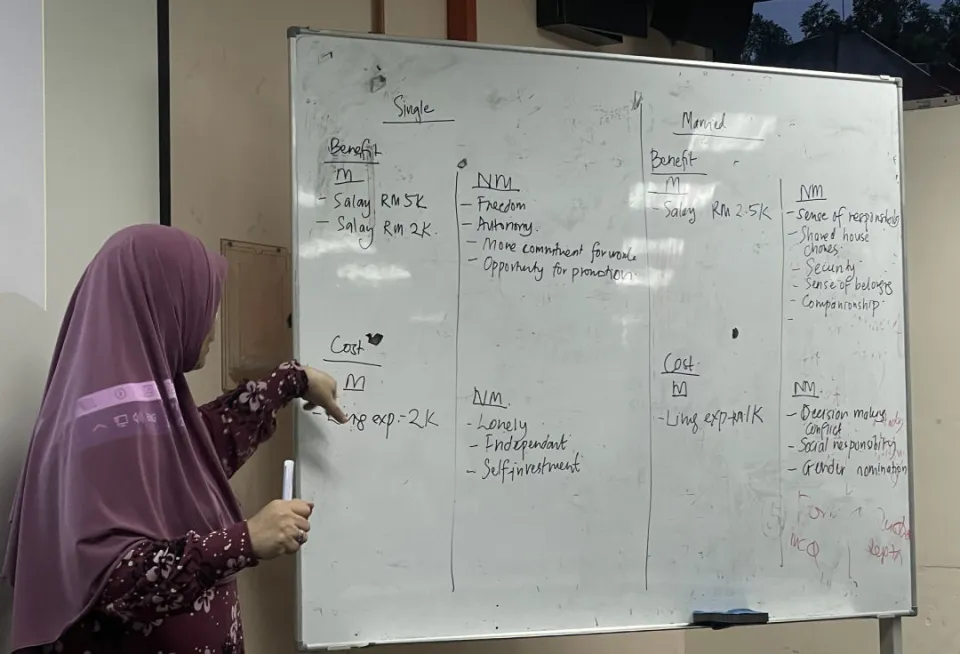 Single
Benefit
M
- Salay RM 5K
- Salay RM 2K.
NM
- Freedom
- Autonomy.
- More commitment for work
- Opportunity for promotion
Cost
M
exp. - 2K
NM.
- Lonely
- Independant
- Self investment
Married
Benefit
M
- Salay RM 2.5K
NM
- Sense of responsibility
- Shared house
chores.
- Security
- Sense of belongs
- Companionship
-
Cost
M
- Living exp 1K
NM.
- Decision making
conflict
- Social responsibility
- Gender nomination